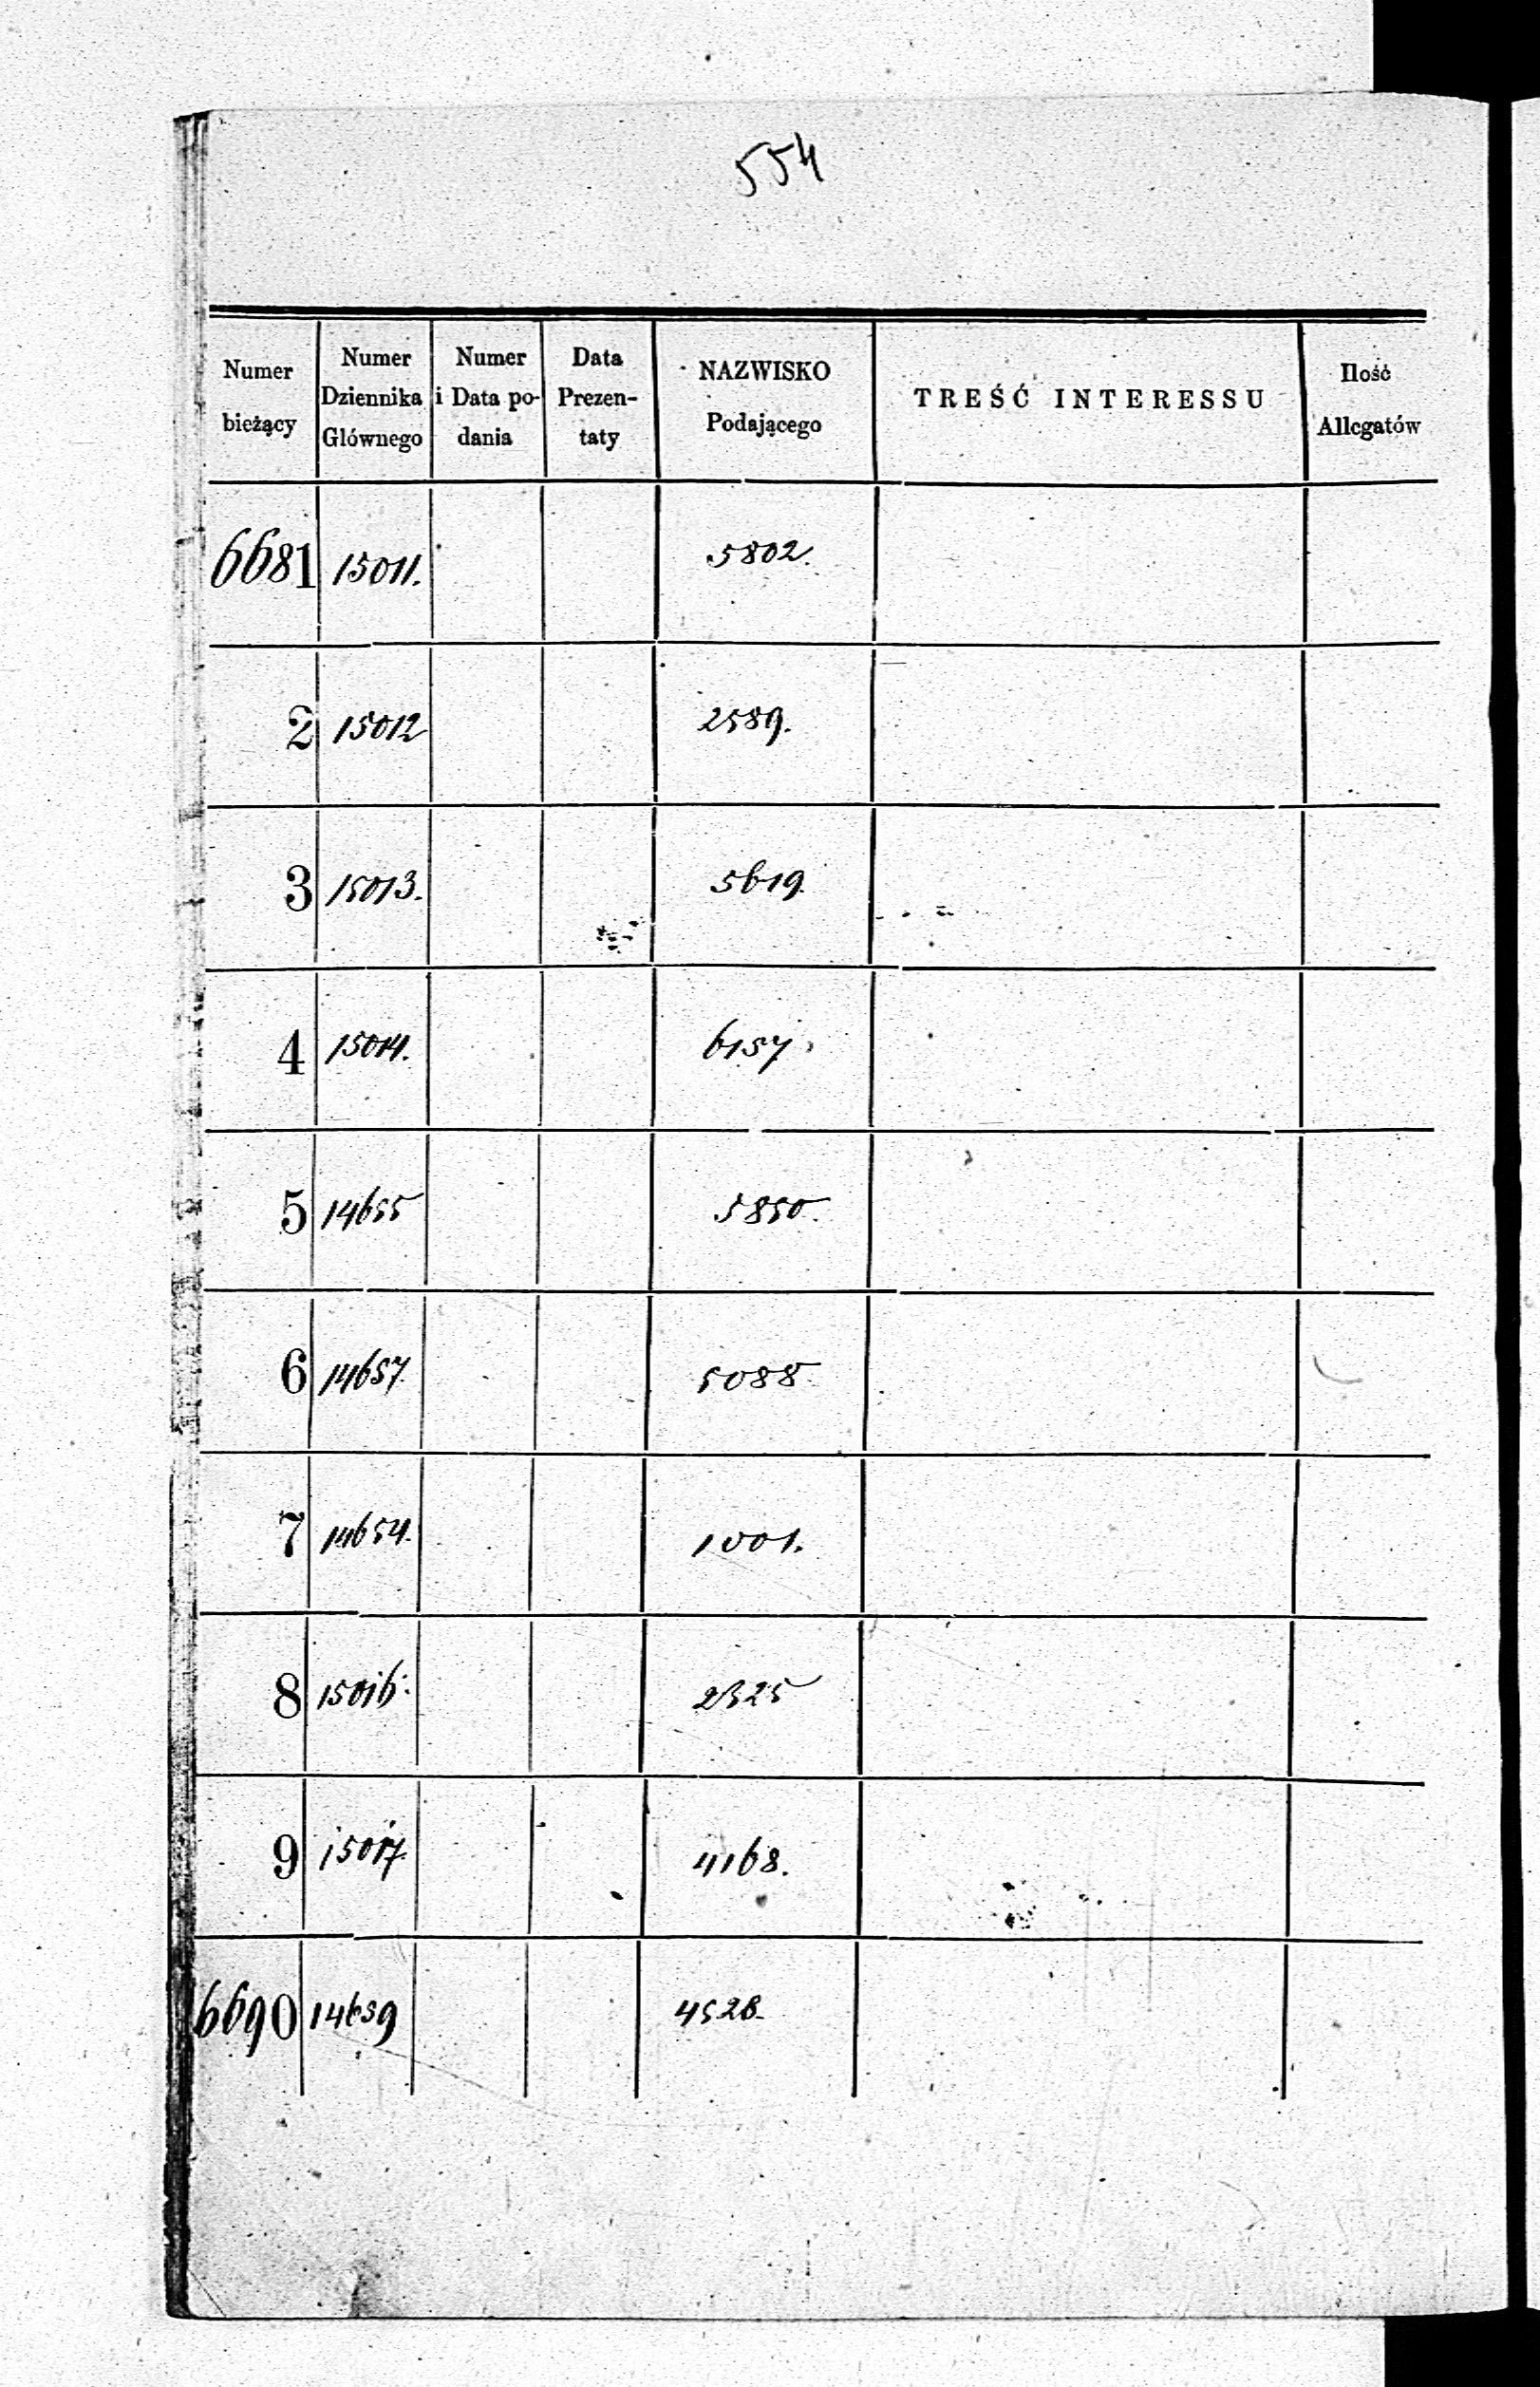 554
Numer bieżący | Numer Dziennika Głównego | Numer i Data podania | Data Prezentaty | NAZWISKO Podającego | TREŚĆ INTERESSU | Ilość Allegatów
6681 15011. 5802.
2 15012 2589.
3 15013. 5619.
4 15014. 6157
5 14655 5850.
6 14657 5088.
7 14654. 1001.
8 15016. 2325
9 15017. 4168.
6690 14659 4528.